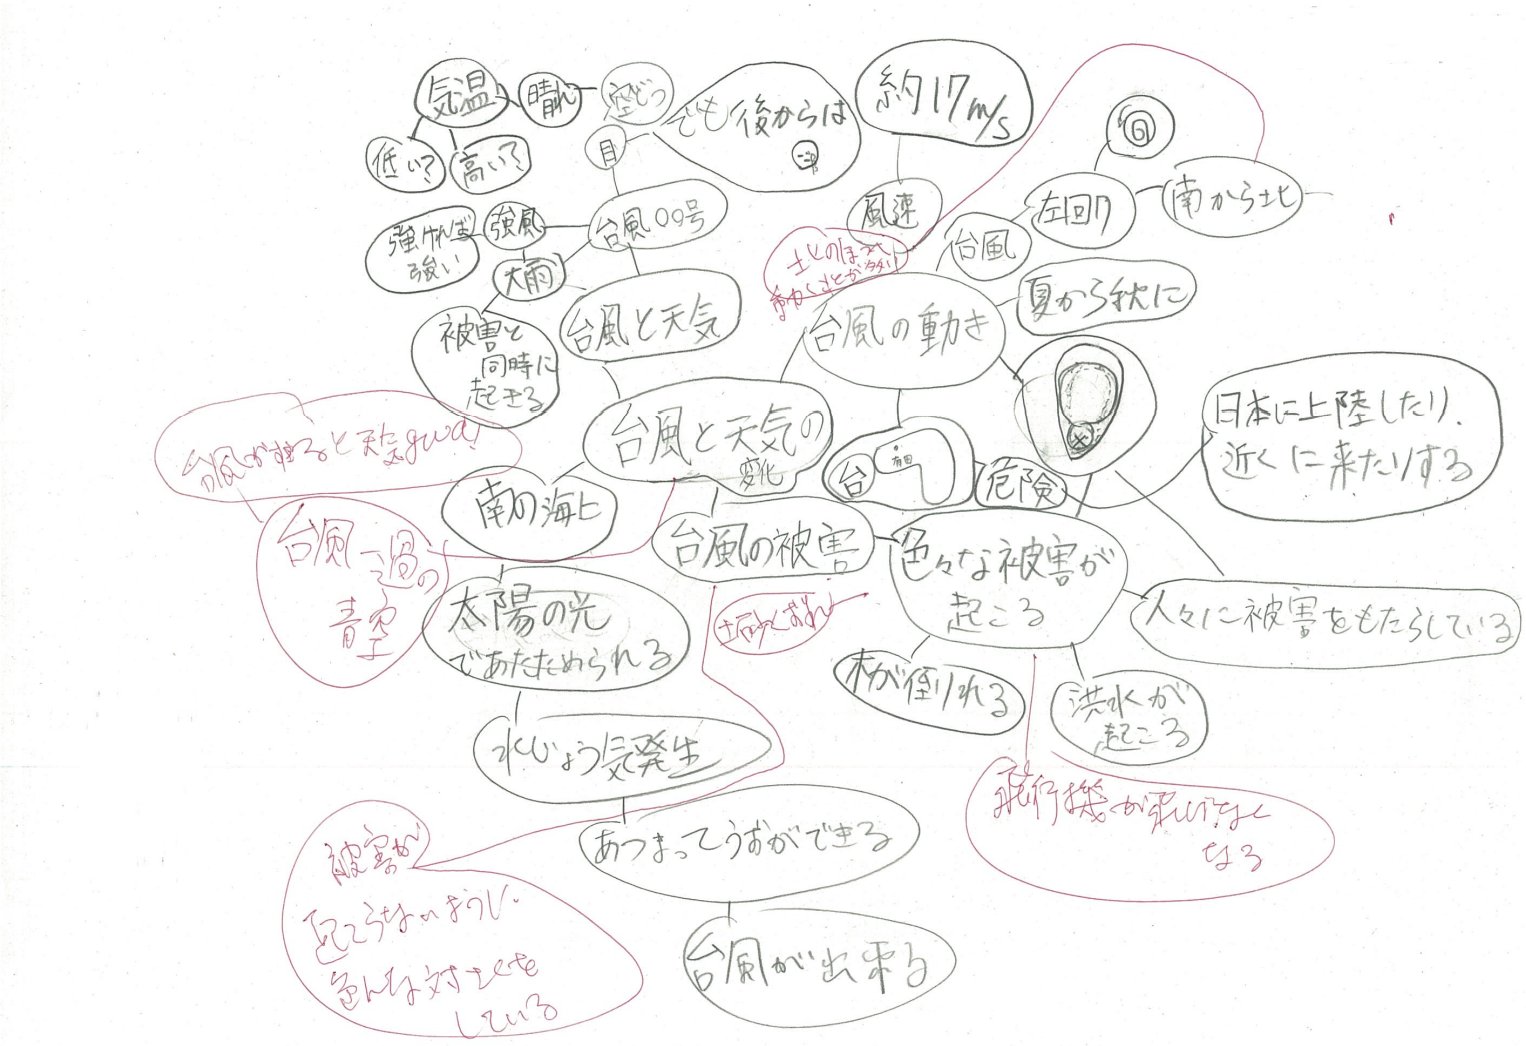 気温
晴れ
空どっ
でも後からは
目
低い?
高い?
約17m/s
風速
台風
左回り
南から北
台風○○号
強風
強ければ
強い
大雨
被害と
同時に
起きる
台風と天気
台風の動き
夏から秋に
台風と天気の
変化
台
危険
日本に上陸したり、
近くに来たりする
南の海上
台風の被害
色々な被害が
起こる
人々に被害をもたらしている
木が倒れる
洪水が
起こる
飛行機が飛ばなく
なる
土砂くずれ
台風
一過の
青空
太陽の光
であたためられる
水じょう気発生
あつまってうずができる
台風が出来る
被害が
起こらないように、
色んな対さくを
している